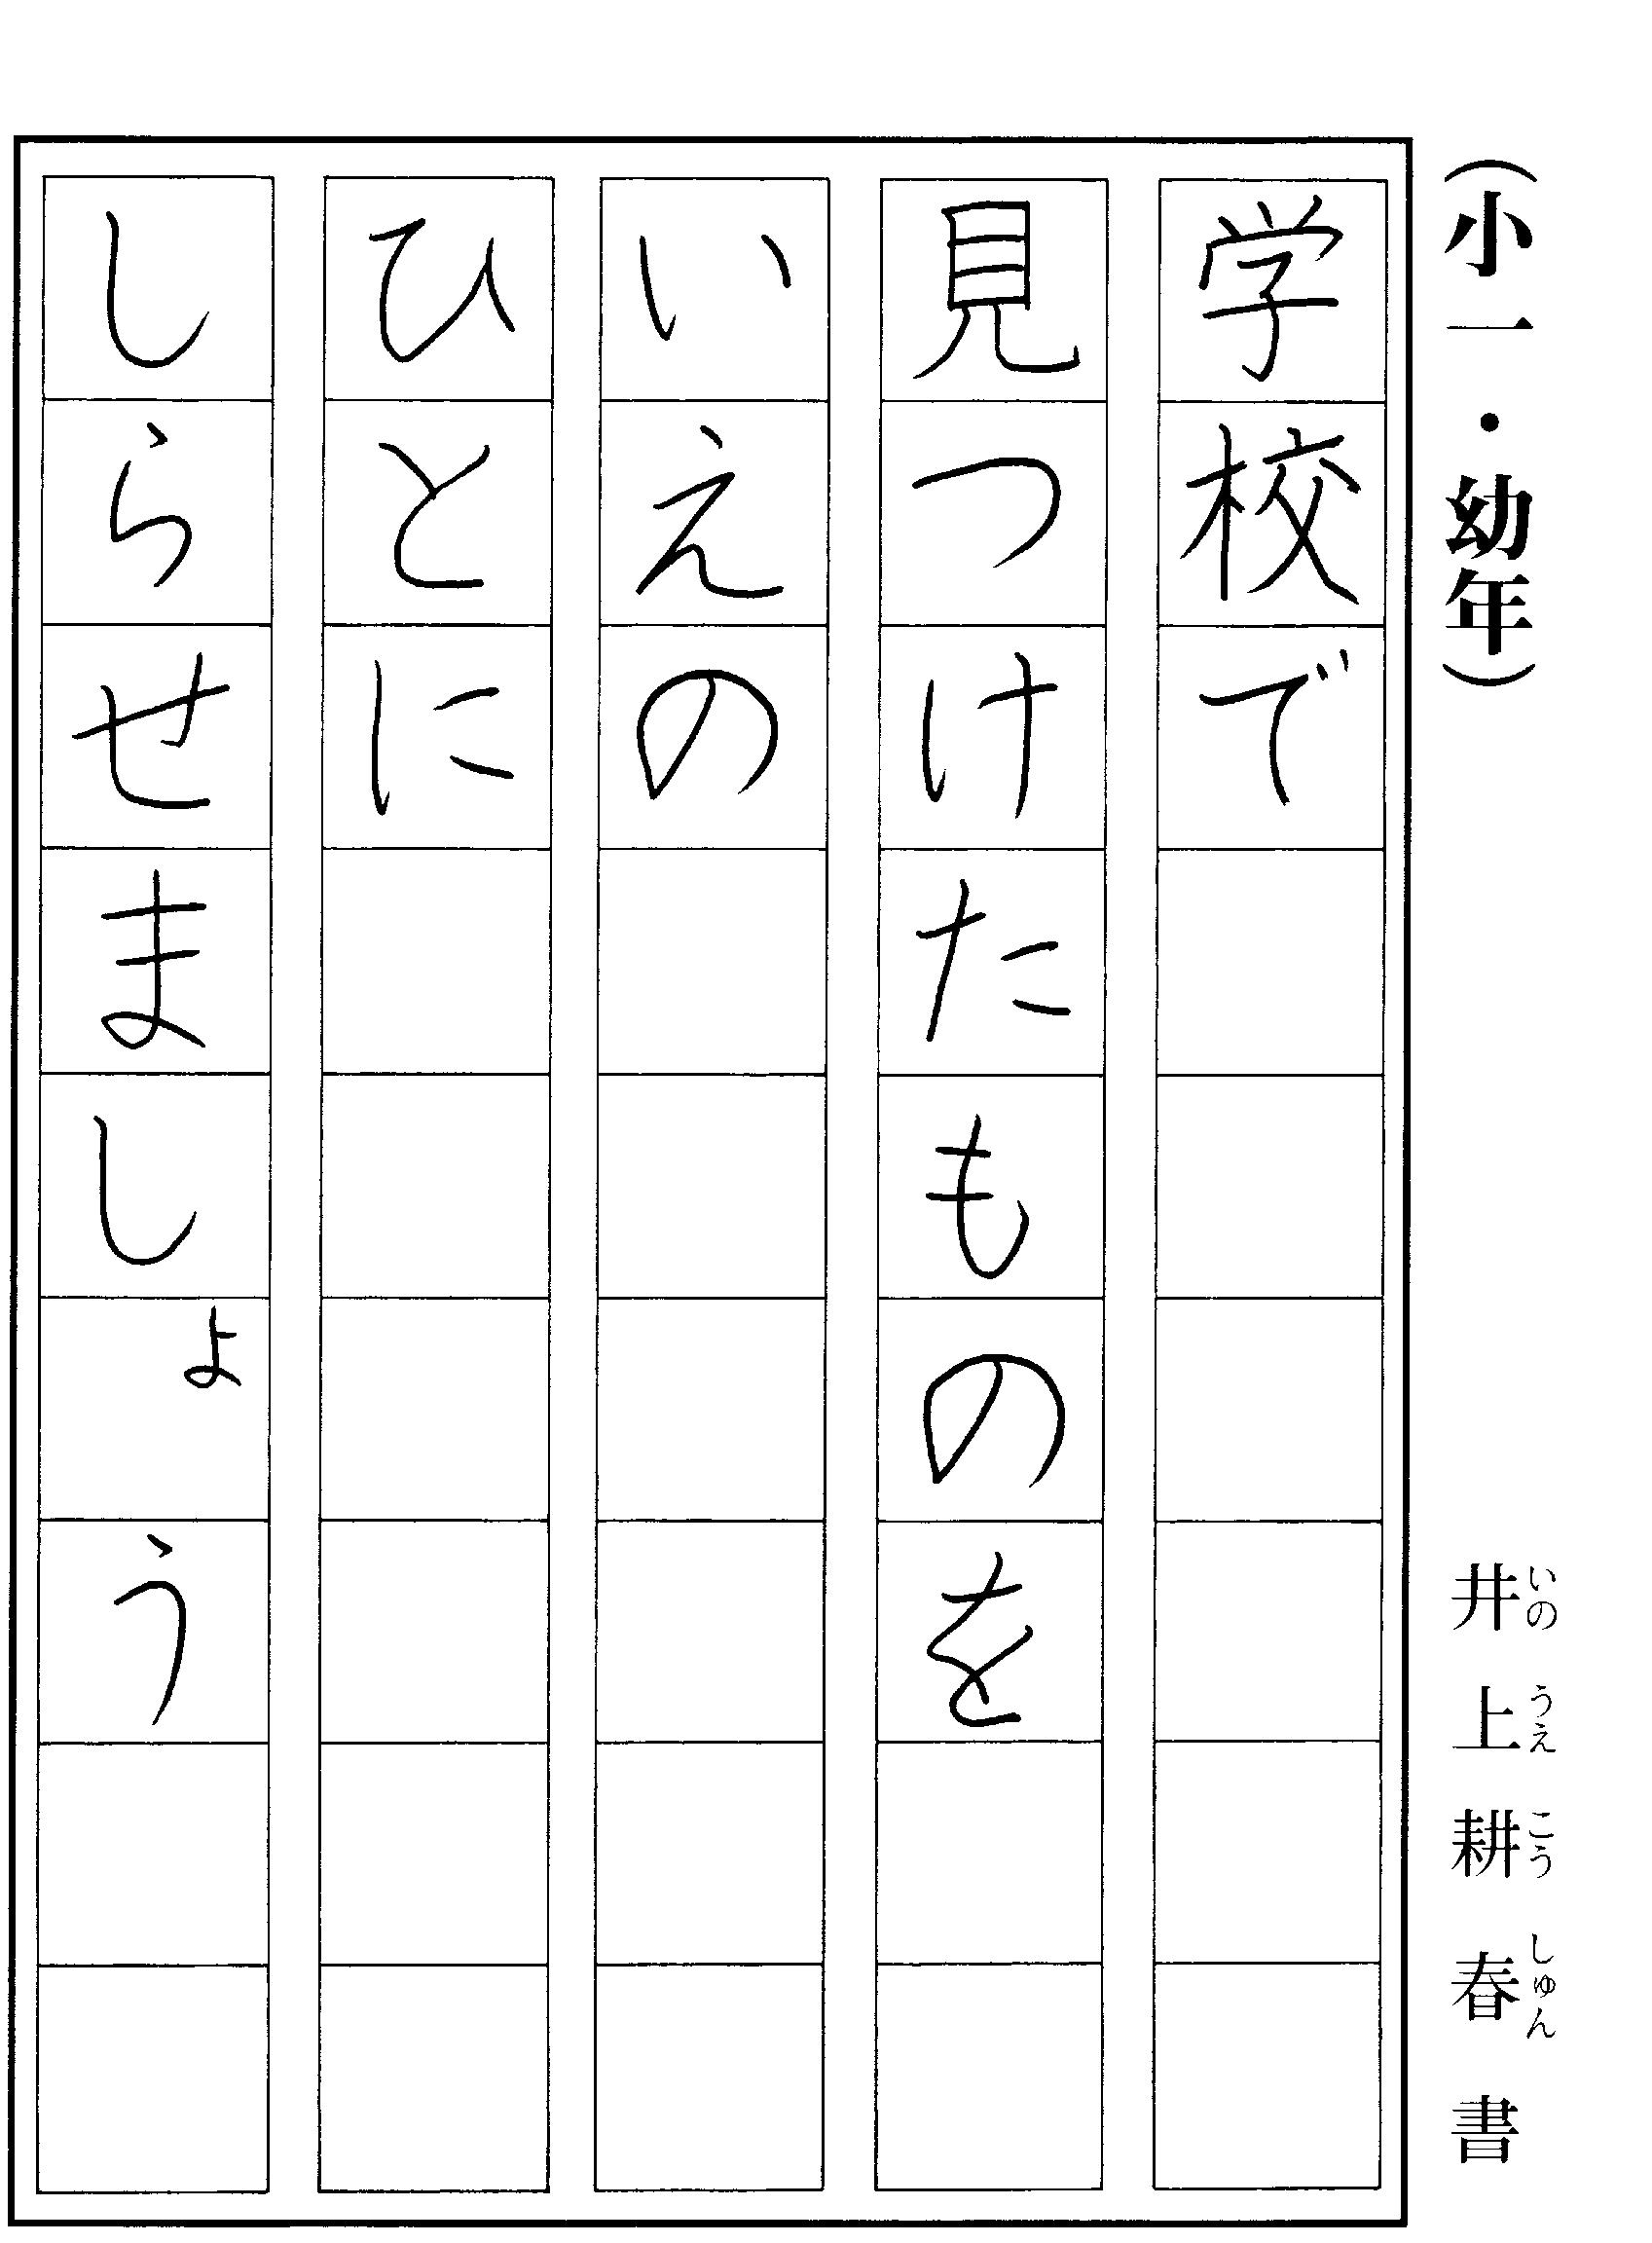 （小一・幼年）
井上耕春書
いのうえこうしゅん
学校で
見つけたものを
いえの
ひとに
しらせましょう